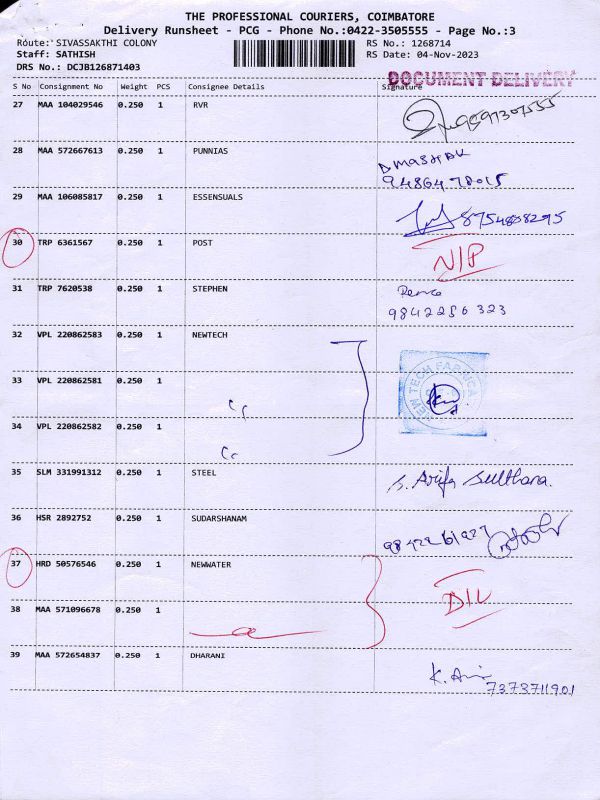 THE PROFESSIONAL COURIERS, COIMBATORE
Delivery Runsheet - PCG - Phone No.:0422-3505555 - Page No.:3
Route: SIVASSAKTHI COLONY RS No.: 1268714
Staff: SATHISH RS Date: 04-Nov-2023
DRS No.: DCJB126871403
DOCUMENT DELIVERY
S No Consignment No Weight PCS Consignee Details Signature
27 MAA 104029546 0.250 1 RVR
28 MAA 572667613 0.250 1 PUNNIAS
29 MAA 106085817 0.250 1 ESSENSUALS 8754808295
30 TRP 6361567 0.250 1 POST N/P
31 TRP 7620538 0.250 1 STEPHEN
9842256323
32 VPL 220862583 0.250 1 NEWTECH
NEW TECH FABRICA
33 VPL 220862581 0.250 1
34 VPL 220862582 0.250 1
35 SLM 331991312 0.250 1 STEEL S. Arifa Sulthana.
36 HSR 2892752 0.250 1 SUDARSHANAM
37 HRD 50576546 0.250 1 NEWWATER D/L
38 MAA 571096678 0.250 1
39 MAA 572654837 0.250 1 DHARANI
7373711901